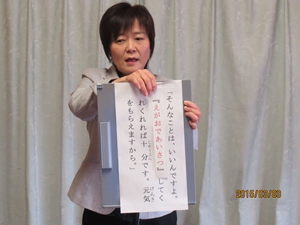 「そんなことは、いいんですよ。
『えがおであいさつ』してく
れくれれば十分です。元気
をもらえますから。」